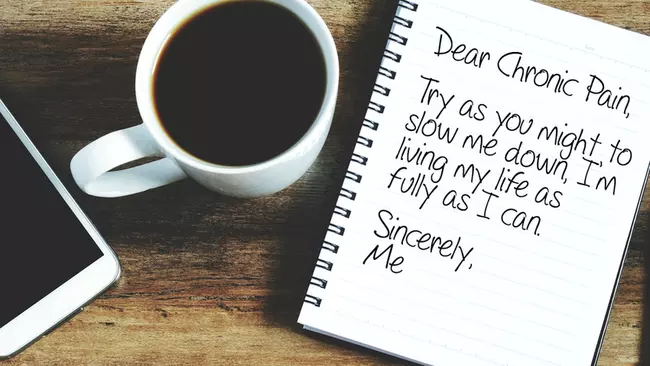 Dear Chronic Pain,
Try as you might to
slow me down, I'm
living my life as
fully as I can.
Sincerely,
Me